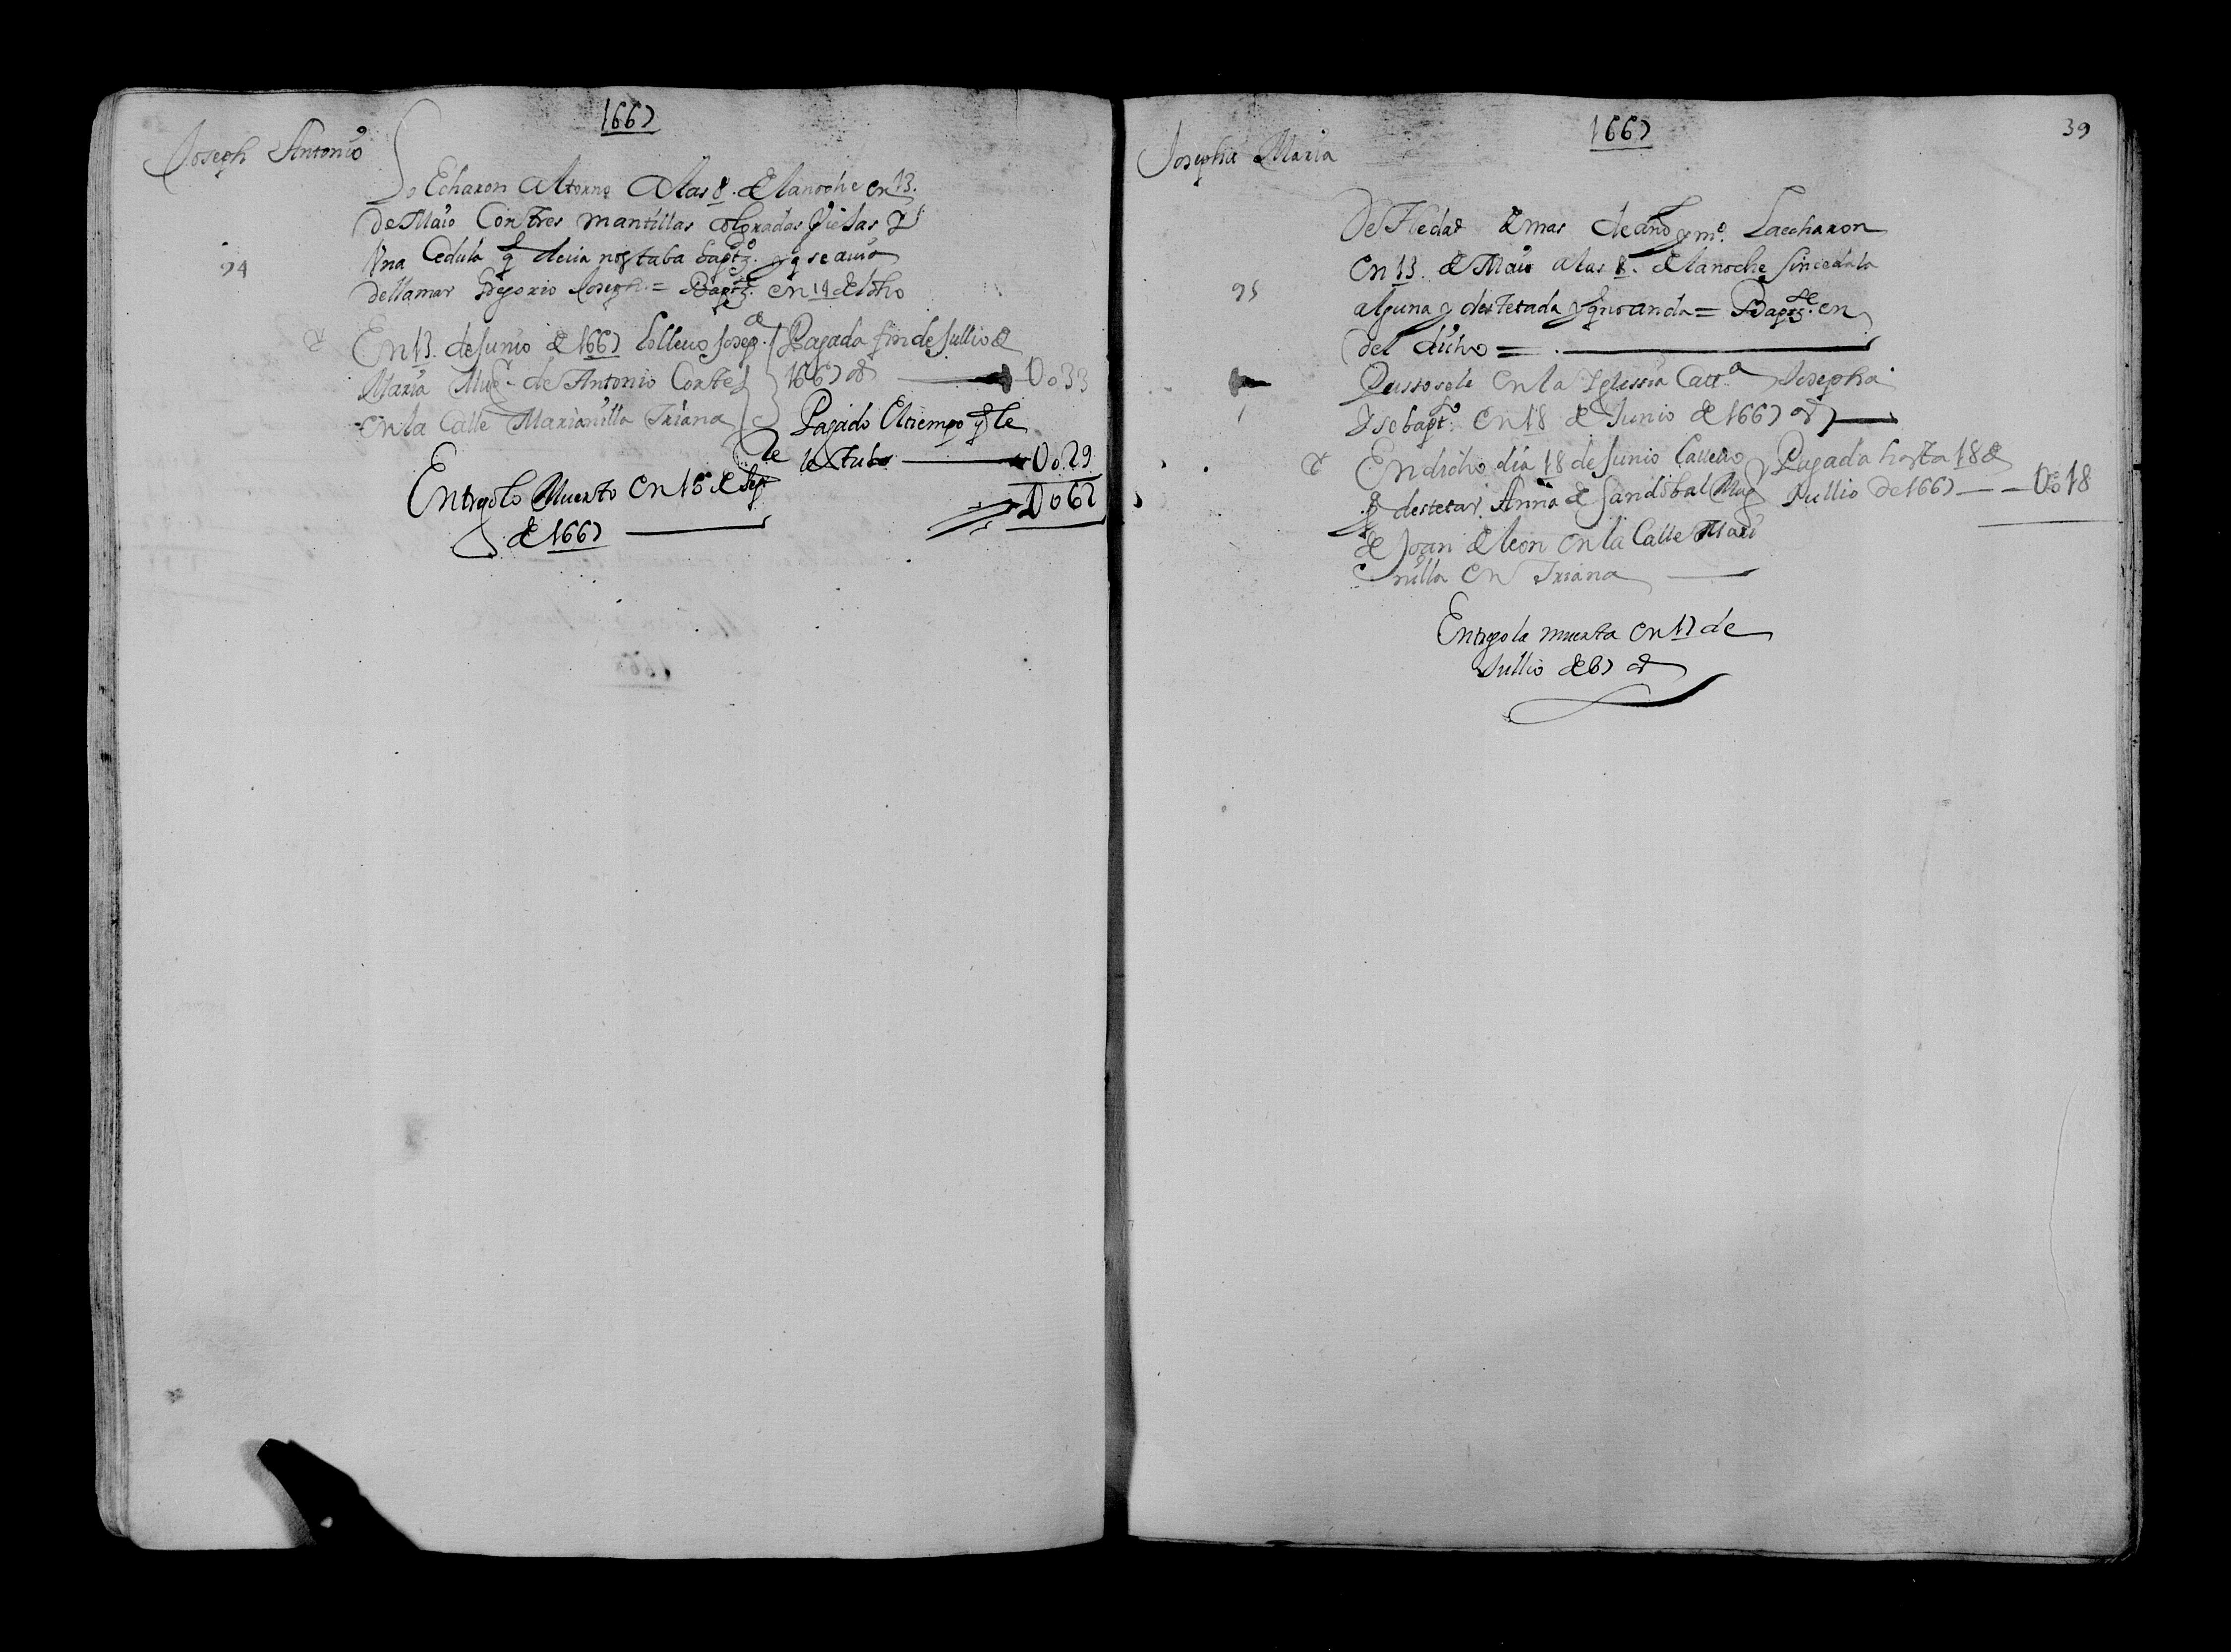 1667
Joseph Antonio
Lo Echaron Al torno A las 8. de la noche en 13.
De Maio Con tres mantillas coloradas Viejas y
Una Cedula q decia no estaba baptzdo. y q se auia
de llamar Gregorio Joseph = Baptze. en 14 del dho
94
En 13. de Junio de 1667 lo lleuo Josepa.
Maria Muger de Antonio Cortes
en la Calle Marianilla Triana
Pagada fin de Jullio de
1667 — Uo33
Pagado El tiempo q le
le tubo — Uo29
Uo62
Entregolo Muerto en 15 de Sepe
de 1667
1667
39
Josepha Maria
De Hedad de mas de año y mo. La echaron
en 13. de Maio a las 8. de la noche sin cedula
alguna y destetada y que anda = Baptze. en
del dicho =
95
Pussosele en la Iglessia Catta. Josepha
Y se bapto. en 18 de Junio de 1667
En dicho dia 18 de Junio La lleuo
p destetar Anna de Sandobal Mug
de Joan de leon en la Calle Mari
nilla en Triana
Pagada hasta 18 de
Jullio de 1667 — Uo18
Entregola muerta en 17 de
Jullio de 67